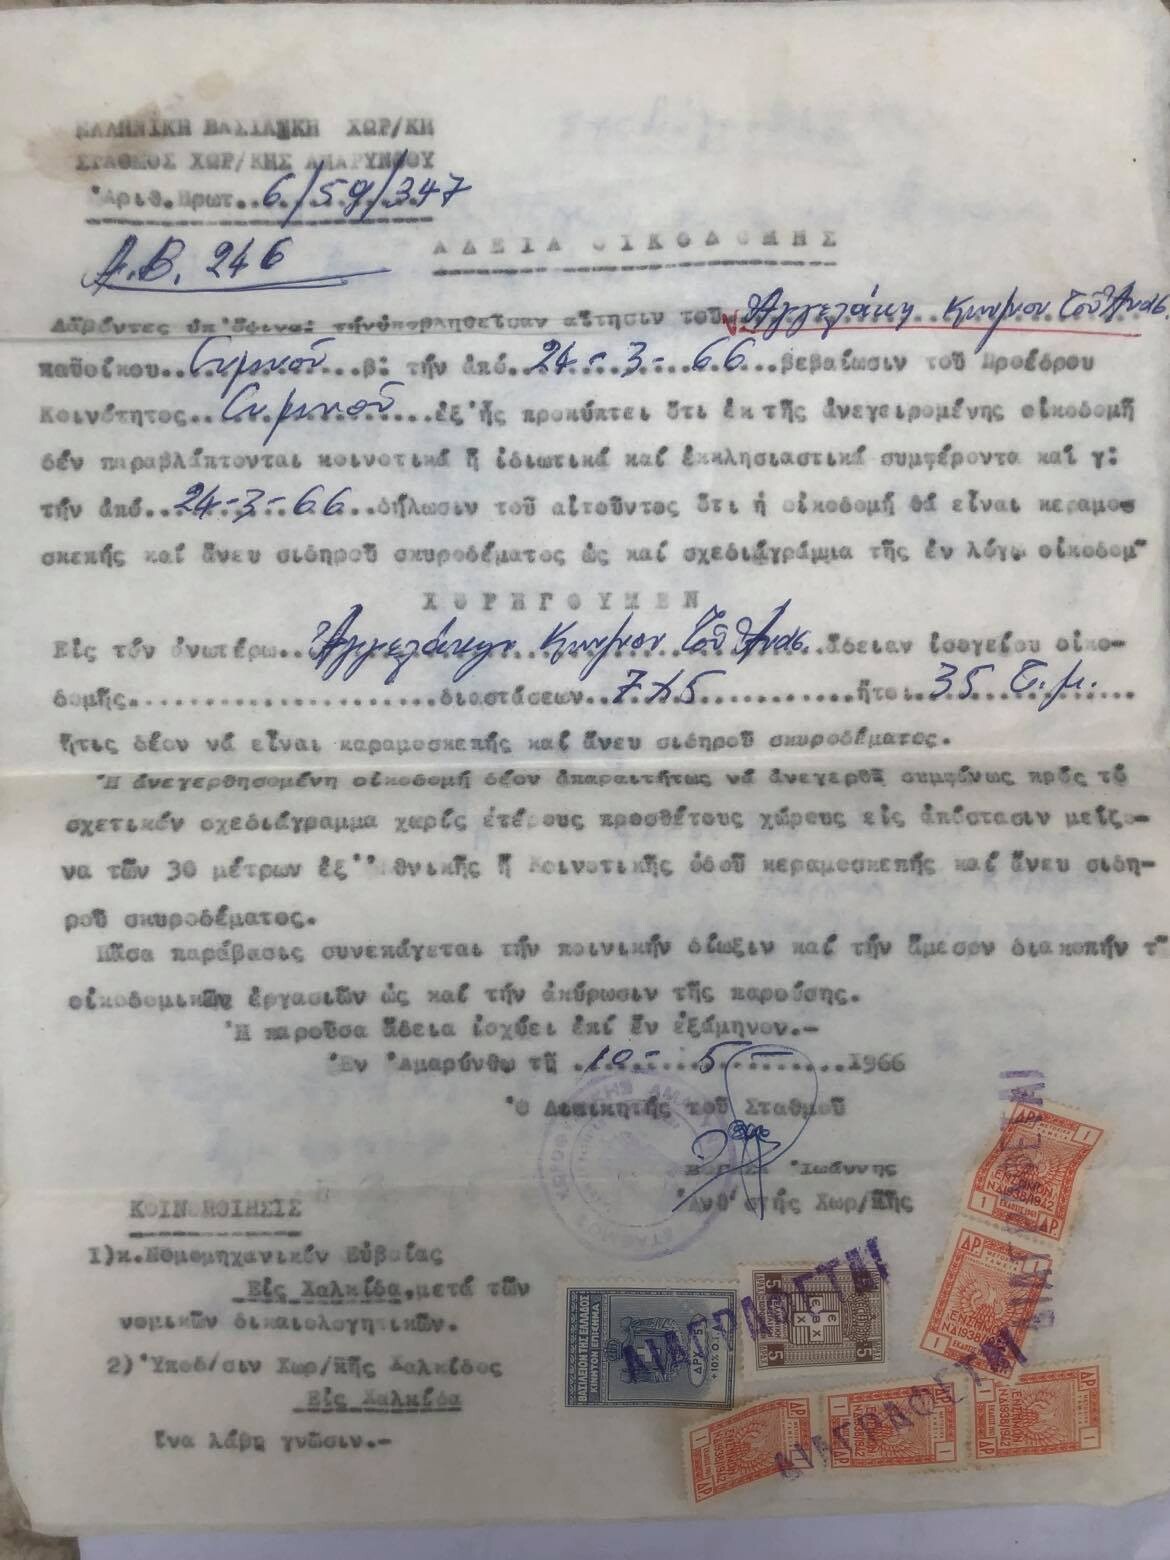 ΕΛΛΗΝΙΚΗ ΒΑΣΙΛΙΚΗ ΧΩΡ/ΚΗ
ΣΤΑΘΜΟΣ ΧΩΡ/ΚΗΣ ΑΜΑΡΥΝΘΟΥ
Ἀριθ.Πρωτ..6/59/347
Α.Β. 246
ΑΔΕΙΑ ΟΙΚΟΔΟΜΗΣ
Λαβόντες ὑπ'ὄψιν α: τήν ὑποβληθεῖσαν αἴτησιν τοῦ Ἀγγελάκη τοῦ Ἀνασ.
κατοίκου.. β: τήν ἀπό..24-3-66..βεβαίωσιν τοῦ Προέδρου
Κοινότητος.. ἐξ'ἧς προκύπτει ὅτι ἐκ τῆς ἀνεγειρομένης οἰκοδομῆ
δέν παραβλάπτονται κοινοτικά ἤ ἰδιωτικά καί ἐκκλησιαστικά συμφέροντα καί γ:
τήν ἀπό..24-3-66..δήλωσιν τοῦ αἰτοῦντος ὅτι ἡ οἰκοδομή θά εἶναι κεραμο-
σκεπής καί ἄνευ σιδηροῦ σκυροδέματος ὡς καί σχεδιάγράμμα τῆς ἐν λόγῳ οἰκοδομ
ΧΟΡΗΓΟΥΜΕΝ
Εἰς τόν ἀνωτέρω..Ἀγγελάκην τοῦ Ἀνασ...ἄδειαν ἰσογείου οἰκο-
δομῆς....................διαστάσεων..7Χ5............ἤτοι.35 τ.μ.
ἥτις δέον νά εἶναι καραμοσκεπής καί ἄνευ σιδηροῦ σκυροδέματος.
Ἡ ἀνεγερθησομένη οἰκοδομή δέον ἀπαραιτήτως νά ἀνεγερθῆ συμφώνως πρός τό
σχετικόν σχεδιάγραμμα χωρίς ἑτέρους προσθέτους χώρους εἰς ἀπόστασιν μείζο-
να τῶν 30 μέτρων ἐξ' Ἐθνικῆς ἤ Κοινοτικῆς ὁδοῦ κεραμοσκεπής καί ἄνευ σιδη-
ροῦ σκυροδέματος.
Πᾶσα παράβασις συνεπάγεται τήν ποινικήν δίωξιν καί τήν ἄμεσον διακοπήν τ
οἰκοδομικῶν ἐργασιῶν ὡς καί τήν ἀκύρωσιν τῆς παρούσης.
Ἡ παροῦσα ἄδεια ἰσχύει ἐπί ἕν ἑξάμηνον.-
Ἐν Ἀμαρύνθῳ τῆ .10-.5-.........1966
Ὁ Διοικητής τοῦ Σταθμοῦ
Ἰωάννης
Ἀνθ'στής Χωρ/κῆς
ΚΟΙΝΟΠΟΙΗΣΙΣ
1)κ.Νομομηχανικόν Εὐβοίας
Εἰς Χαλκίδα,μετά τῶν
νομικῶν δικαιολογητικῶν.
2) Ὑποδ/σιν Χωρ/κῆς Χαλκίδος
Εἰς Χαλκίδα
ἵνα λάβη γνῶσιν.-
ΒΑΣΙΛΕΙΟΝ ΤΗΣ ΕΛΛΑΔΟΣ
ΚΙΝΗΤΟΝ ΕΠΙΣΗΜΑ
ΔΡΧ 5
+10% Ο.Γ.Α
5 5
ΔΙΑΓΡΑΦΕΤΑΙ
ΔΡ. 1
ΜΕΤΟΧΙΚΑ ΤΑΜΕΙΑ
Ν.Δ. 1938/1942
ΔΡ. 1
Ν.Δ. 1938/1942
ΔΡ. 1
Ν.Δ. 1938/1942
ΔΡ. 1
Ν.Δ. 1938/1942
ΔΡ. 1
Ν.Δ. 1938/1942
ΔΙΑΓΡΑΦΕΤΑΙ